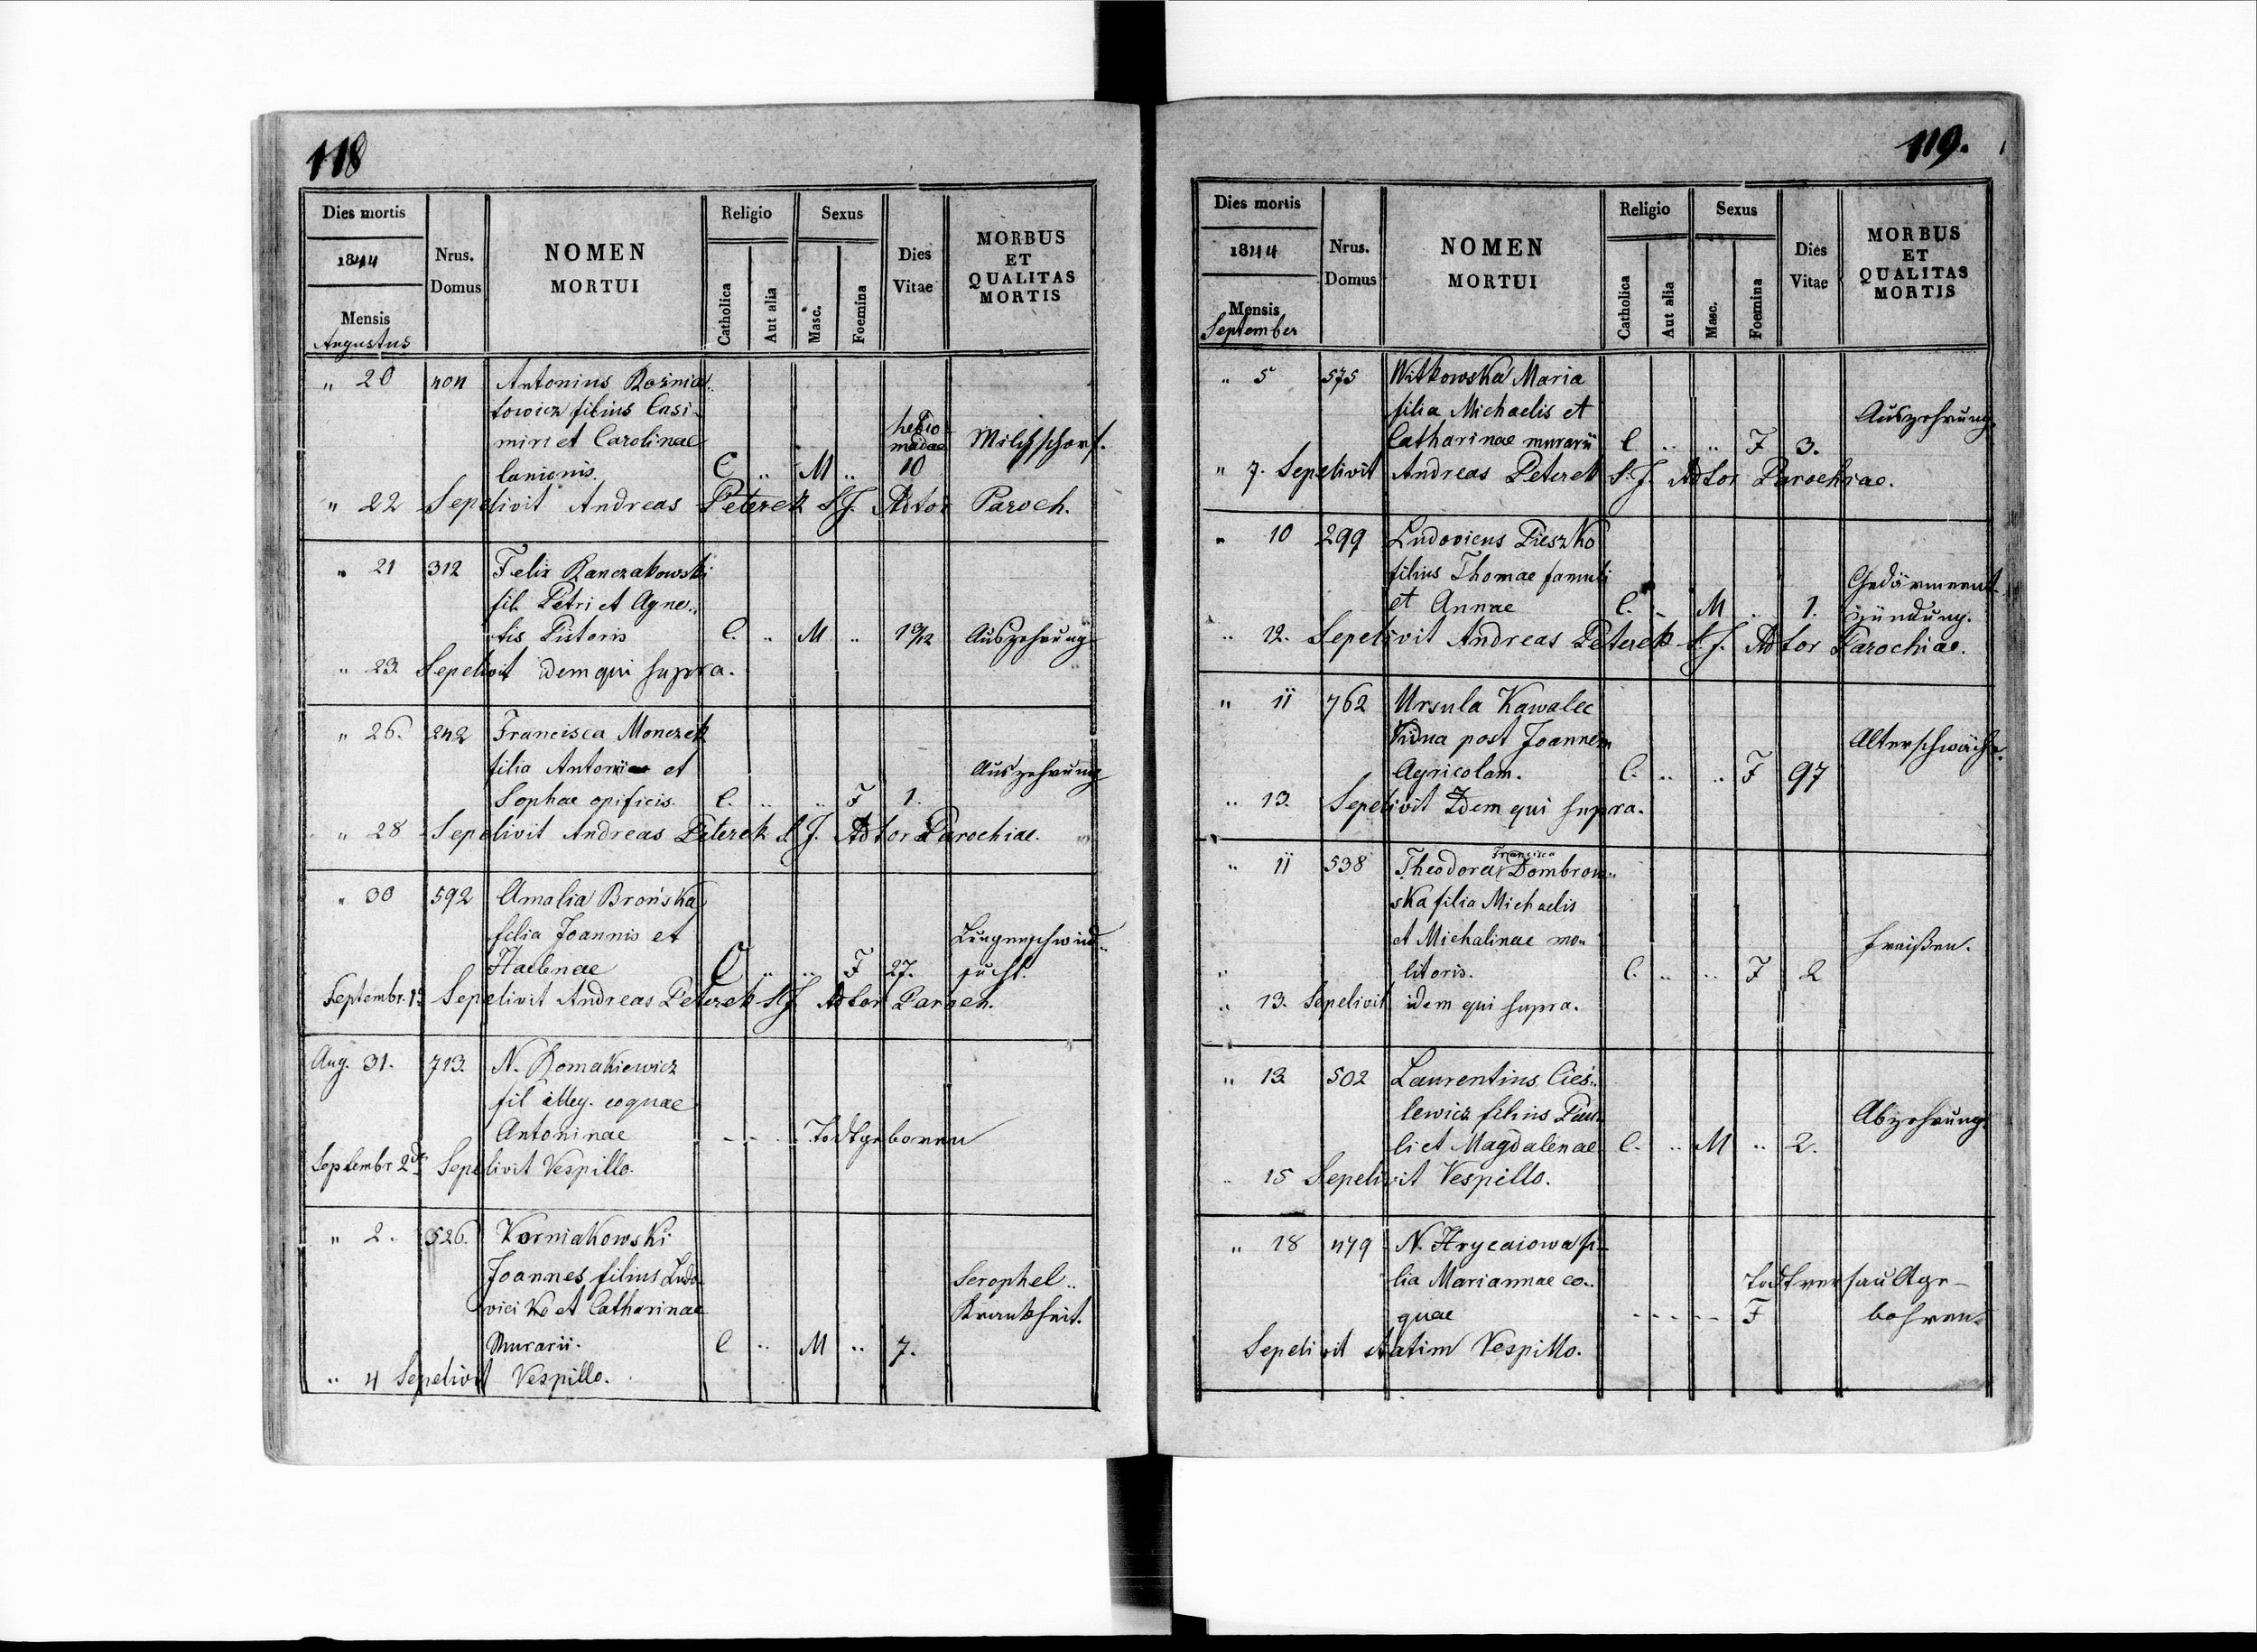 118
Dies mortis
1844
Mensis
Augustus
Nrus.
Domus
NOMEN
MORTUI
Religio
Catholica
Aut alia
Sexus
Masc.
Foemina
Dies
Vitae
MORBUS
ET
QUALITAS
MORTIS
" 20 404 Antonius Rożnia„
towicz filius Casi-
miri et Carolinae hebdo
madae Milchschorf.
lanionis. C „ M „ 10
" 22 Sepelivit Andreas Peterek S.J. Adtor Paroch.
" 21 312 Felix Ranczakowski
fil. Petri et Agne„
tis Pistoris C. „ M „ 1 9/12 Auszehrung
" 23. Sepelivit idem qui supra.
" 26. 242 Francisca Monczek
filia Antonii et Auszehrung
Sophae opificis. C. „ „ F 1.
" 28 Sepelivit Andreas Peterek S.J. Adtor Parochiae.
" 30 592 Amalia Brońska
filia Joannis et Lungenschwind„
Haelenae C „ „ F 27. sucht.
Septembr. 1a Sepelivit Andreas Peterek S.J. Adtor Paroch.
Aug. 31. 713. N. Romakiewicz
fil illeg. coquae
Antoninae Todtgeboren
Septembr 2da Sepelivit Vespillo.
" 2. 526. Korniakowski
Joannes filius Ludo- Scrophel„
vici Ko et Catharinae Krankheit.
Murarii. C „ M „ 7.
" 4 Sepelivit Vespillo.
119.
Dies mortis
1844
Mensis
September
Nrus.
Domus
NOMEN
MORTUI
Religio
Catholica
Aut alia
Sexus
Masc.
Foemina
Dies
Vitae
MORBUS
ET
QUALITAS
MORTIS
" 5 575 Witkowska Maria
filia Michaelis et Auszehrung.
Catharinae murarii C „ „ F 3.
" 7. Sepelivit Andreas Peterek S.J. Adtor Parochiae.
" 10 299 Ludovicus Pieszko
filius Thomae famuli Gedärment-
et Annae C. „ M „ 1. zündung.
" 12. Sepelivit Andreas Peterek S.J. Adtor Parochiae.
" 11 762 Ursula Kawalec
Vidua post Joannem Alterschwäche.
Agricolam. C. „ „ F 97
" 13. Sepelivit Idem qui supra.
Francisca
" 11 538 Theodora Dombrow„
ska filia Michaelis
et Michalinae mo„ Fraißen.
" litoris. C. „ „ F 2
" 13. Sepelivit idem qui supra.
" 13 502 Laurentius Cieś„
lewicz filius Pau- Abzehrung.
li et Magdalenae C. „ M „ 2.
" 15 Sepelivit Vespillo.
" 18 479 N. Hrycaiowa fi-
lia Mariannae co„ Todtverfaultge-
quae F bohren.
Sepelivit statim Vespillo.